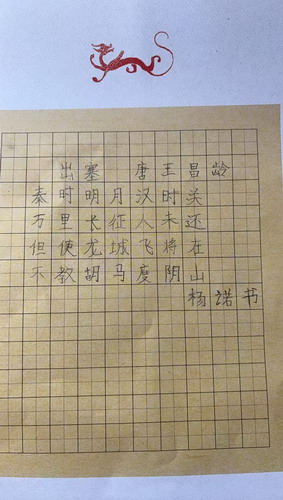 出塞 唐王昌龄
秦时明月汉时关
万里长征人未还
但使龙城飞将在
不教胡马度阴山
杨诺书